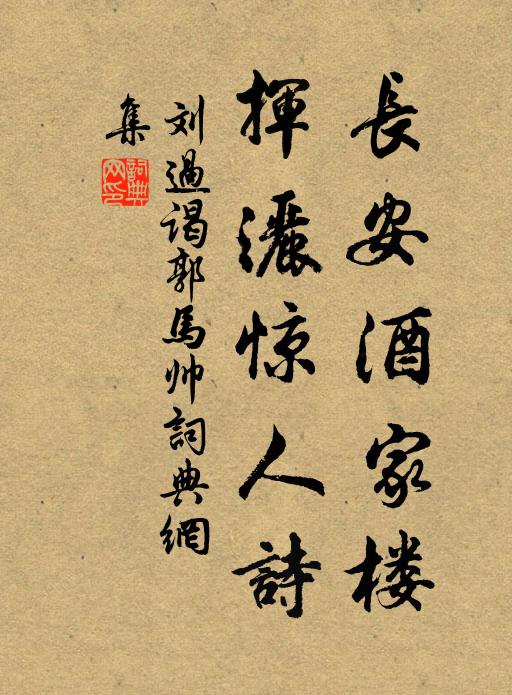 長安酒家楼
揮灑惊人詩
刘過谒郭馬帅詞典網
集
詞典
网印